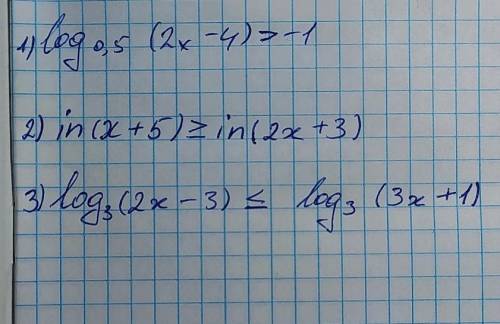 1) log₀,₅ (2x - 4) > -1
2) in(x + 5) ≥ in(2x + 3)
3) log₃(2x - 3) ≤ log₃ (3x + 1)